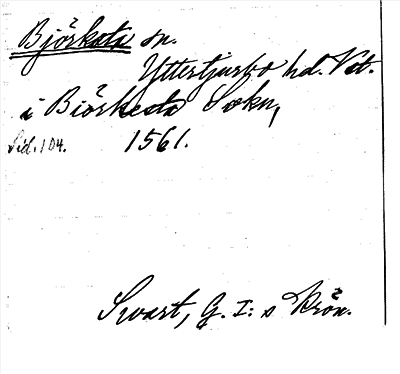 Björksta sn.
Yttertjurbo hd. Vstm.
i Biörkesta Sokn,
Sid. 104. 1561.
Swart, G. I:s krön.